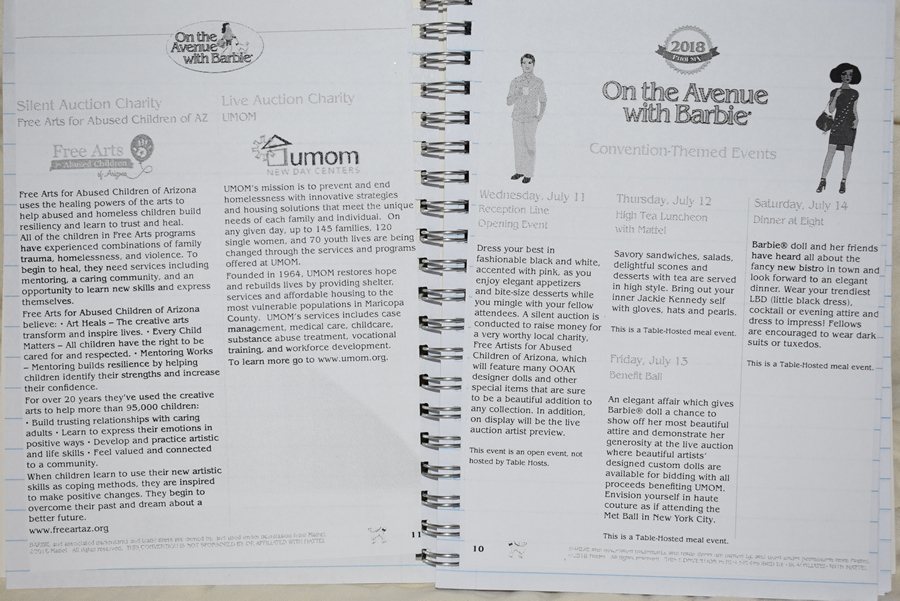 On the
Avenue
with Barbie®
Silent Auction Charity
Free Arts for Abused Children of AZ
Free Arts
for Abused Children
of Arizona
Free Arts for Abused Children of Arizona
uses the healing powers of the arts to
help abused and homeless children build
resiliency and learn to trust and heal.
All of the children in Free Arts programs
have experienced combinations of family
trauma, homelessness, and violence. To
begin to heal, they need services including
mentoring, a caring community, and an
opportunity to learn new skills and express
themselves.
Free Arts for Abused Children of Arizona
believe: • Art Heals – The creative arts
transform and inspire lives. • Every Child
Matters – All children have the right to be
cared for and respected. • Mentoring Works
– Mentoring builds resilience by helping
children identify their strengths and increase
their confidence.
For over 20 years they've used the creative
arts to help more than 95,000 children:
• Build trusting relationships with caring
adults • Learn to express their emotions in
positive ways • Develop and practice artistic
and life skills • Feel valued and connected
to a community.
When children learn to use their new artistic
skills as coping methods, they are inspired
to make positive changes. They begin to
overcome their past and dream about a
better future.
www.freeartaz.org
Live Auction Charity
UMOM
umom
NEW DAY CENTERS
UMOM's mission is to prevent and end
homelessness with innovative strategies
and housing solutions that meet the unique
needs of each family and individual. On
any given day, up to 145 families, 120
single women, and 70 youth lives are being
changed through the services and programs
offered at UMOM.
Founded in 1964, UMOM restores hope
and rebuilds lives by providing shelter,
services and affordable housing to the
most vulnerable populations in Maricopa
County. UMOM's services includes case
management, medical care, childcare,
substance abuse treatment, vocational
training, and workforce development.
To learn more go to www.umom.org.
11
2018
On the Avenue
with Barbie®
Convention-Themed Events
Wednesday, July 11
Reception Line
Opening Event
Dress your best in
fashionable black and white,
accented with pink, as you
enjoy elegant appetizers
and bite-size desserts while
you mingle with your fellow
attendees. A silent auction is
conducted to raise money for
a very worthy local charity,
Free Artists for Abused
Children of Arizona, which
will feature many OOAK
designer dolls and other
special items that are sure
to be a beautiful addition to
any collection. In addition,
on display will be the live
auction artist preview.
This event is an open event, not
hosted by Table Hosts.
Thursday, July 12
High Tea Luncheon
with Mattel
Savory sandwiches, salads,
delightful scones and
desserts with tea are served
in high style. Bring out your
inner Jackie Kennedy self
with gloves, hats and pearls.
This is a Table-Hosted meal event.
Friday, July 13
Benefit Ball
An elegant affair which gives
Barbie® doll a chance to
show off her most beautiful
attire and demonstrate her
generosity at the live auction
where beautiful artists'
designed custom dolls are
available for bidding with all
proceeds benefiting UMOM.
Envision yourself in haute
couture as if attending the
Met Ball in New York City.
This is a Table-Hosted meal event.
Saturday, July 14
Dinner at Eight
Barbie® doll and her friends
have heard all about the
fancy new bistro in town and
look forward to an elegant
dinner. Wear your trendiest
LBD (little black dress),
cocktail or evening attire and
dress to impress! Fellows
are encouraged to wear dark
suits or tuxedos.
This is a Table-Hosted meal event.
10